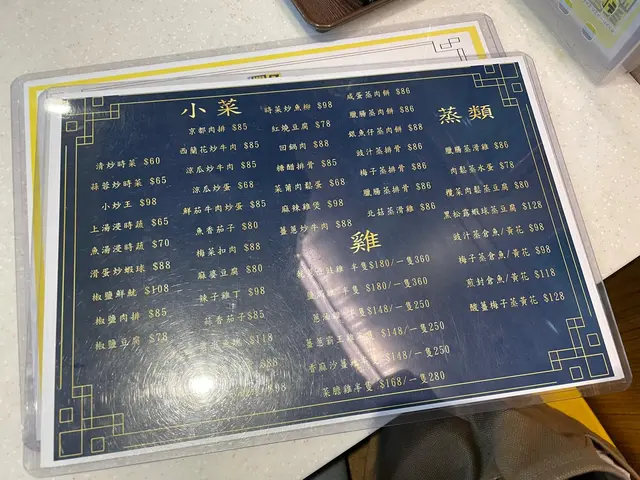 小菜
清炒時菜 $60
蒜蓉炒時菜 $65
小炒王 $98
上湯浸時蔬 $65
魚湯浸時蔬 $70
滑蛋炒蝦球 $88
椒鹽鮮魷 $108
椒鹽肉排 $85
椒鹽豆腐 $78
京都肉排 $85
西蘭花炒牛肉 $85
涼瓜炒牛肉 $85
涼瓜炒蛋 $68
鮮茄牛肉炒蛋 $85
魚香茄子 $80
梅菜扣肉 $88
麻婆豆腐 $80
辣子雞丁 $98
蒜香茄子 $85
$118
$88
$88
時菜炒魚柳 $98
紅燒豆腐 $78
回鍋肉 $88
糖醋排骨 $85
菜莆肉鬆蛋 $68
麻辣雞煲 $98
薑蔥炒牛肉 $88
咸蛋蒸肉餅 $86
臘腸蒸肉餅 $86
銀魚仔蒸肉餅 $88
豉汁蒸排骨 $86
梅子蒸排骨 $86
臘腸蒸排骨 $86
北菇蒸滑雞 $86
蒸類
臘腸蒸滑雞 $86
肉鬆蒸水蛋 $78
欖菜肉鬆蒸豆腐 $80
黑松露蝦球蒸豆腐 $128
豉汁蒸倉魚/黃花 $98
梅子蒸倉魚/黃花 $98
煎封倉魚/黃花 $118
酸薑梅子蒸黃花 $128
雞
半隻$180/一隻$360
半隻 $180/一隻$360
蔥油雞 $148/一隻$250
薑蔥霸王雞 $148/一隻$250
香麻沙薑 $148/一隻250
菜膽雞半隻 $168/一隻$280